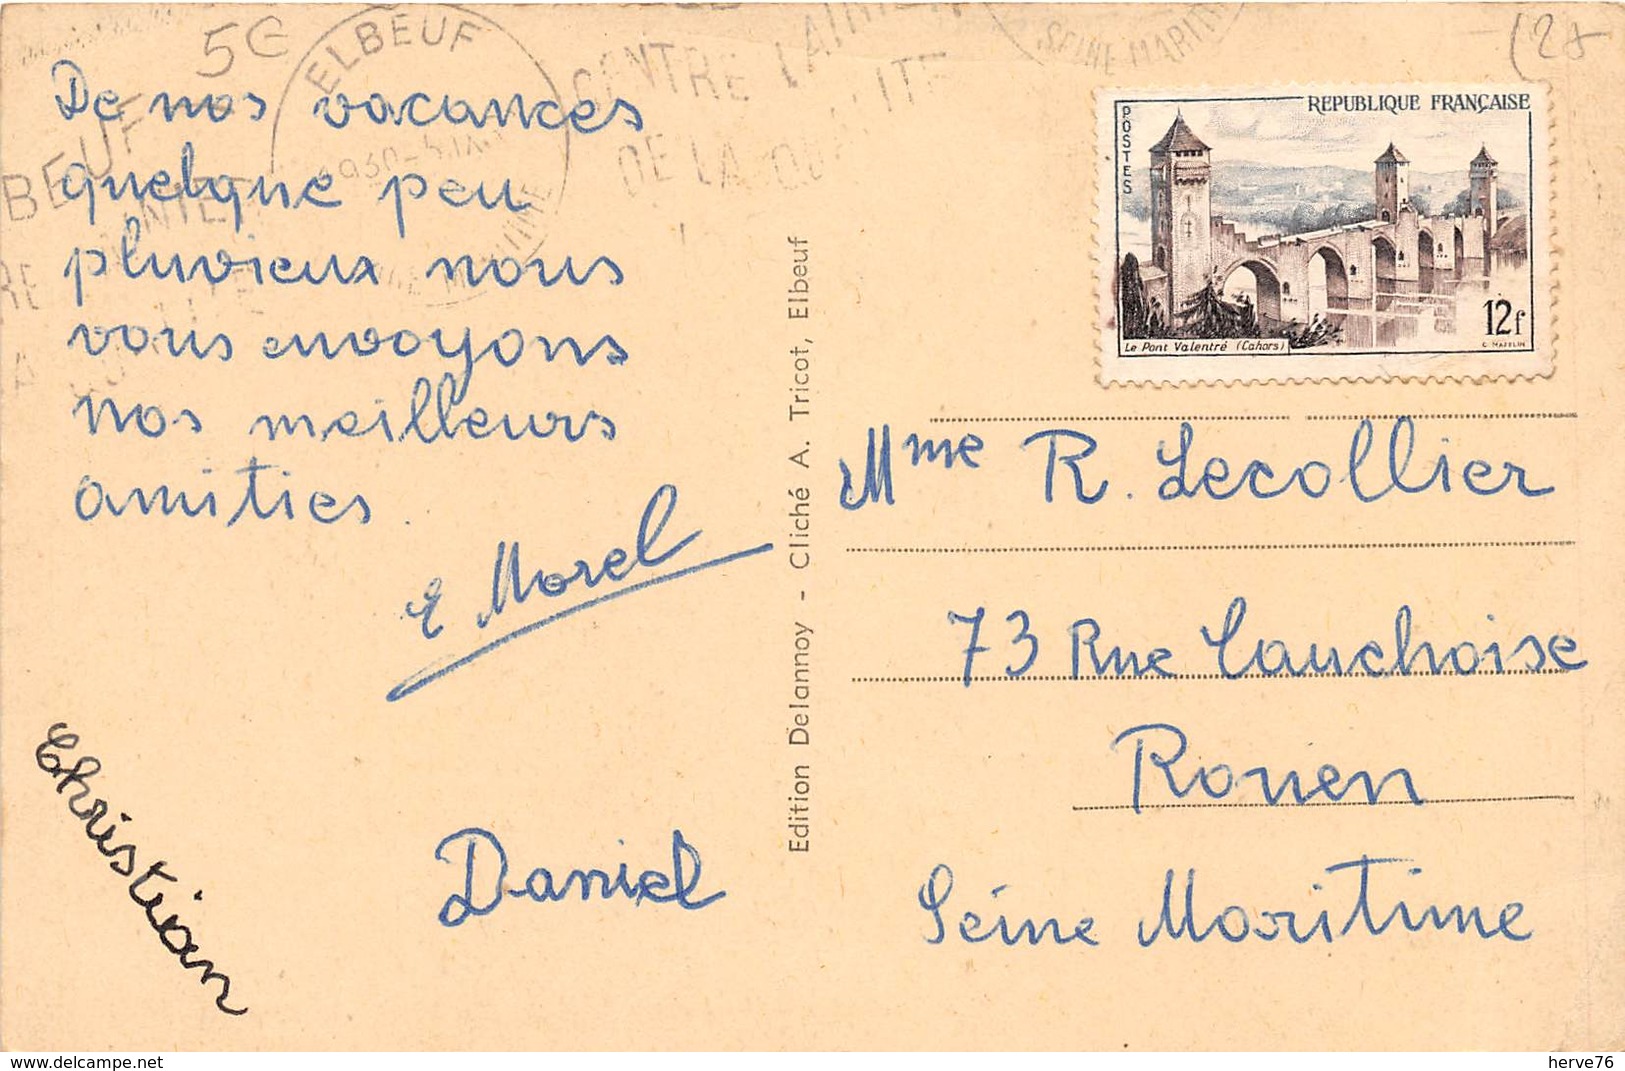 5G
ELBEUF
1930 - 5 IX
SEINE MARITIME
CENTRE LAINIER
DE LA QUALITE
De nos vacances
quelque peu
pluvieux nous
vous envoyons
nos meilleurs
amities.
E Morel
Christian
Daniel
Edition Delannoy - Cliché A. Tricot, Elbeuf
POSTES
REPUBLIQUE FRANÇAISE
12f
Le Pont Valentré (Cahors)
Mme R. Lecollier
73 Rue Cauchoise
Rouen
Seine Maritime
delcampe.net
herve76